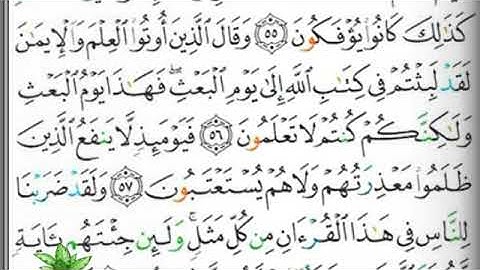 كَذَٰلِكَ كَانُوا۟ يُؤْفَكُونَ ٥٥ وَقَالَ الَّذِينَ أُوتُوا۟ الْعِلْمَ وَالْإِيمَٰنَ
لَقَدْ لَبِثْتُمْ فِي كِتَٰبِ اللَّهِ إِلَىٰ يَوْمِ الْبَعْثِ ۖ فَهَٰذَا يَوْمُ الْبَعْثِ
وَلَٰكِنَّكُمْ كُنتُمْ لَا تَعْلَمُونَ ٥٦ فَيَوْمَئِذٍ لَّا يَنفَعُ الَّذِينَ
ظَلَمُوا۟ مَعْذِرَتُهُمْ وَلَا هُمْ يُسْتَعْتَبُونَ ٥٧ وَلَقَدْ ضَرَبْنَا
لِلنَّاسِ فِي هَٰذَا الْقُرْءَانِ مِن كُلِّ مَثَلٍ ۚ وَلَئِن جِئْتَهُم بِـَٔايَةٍ